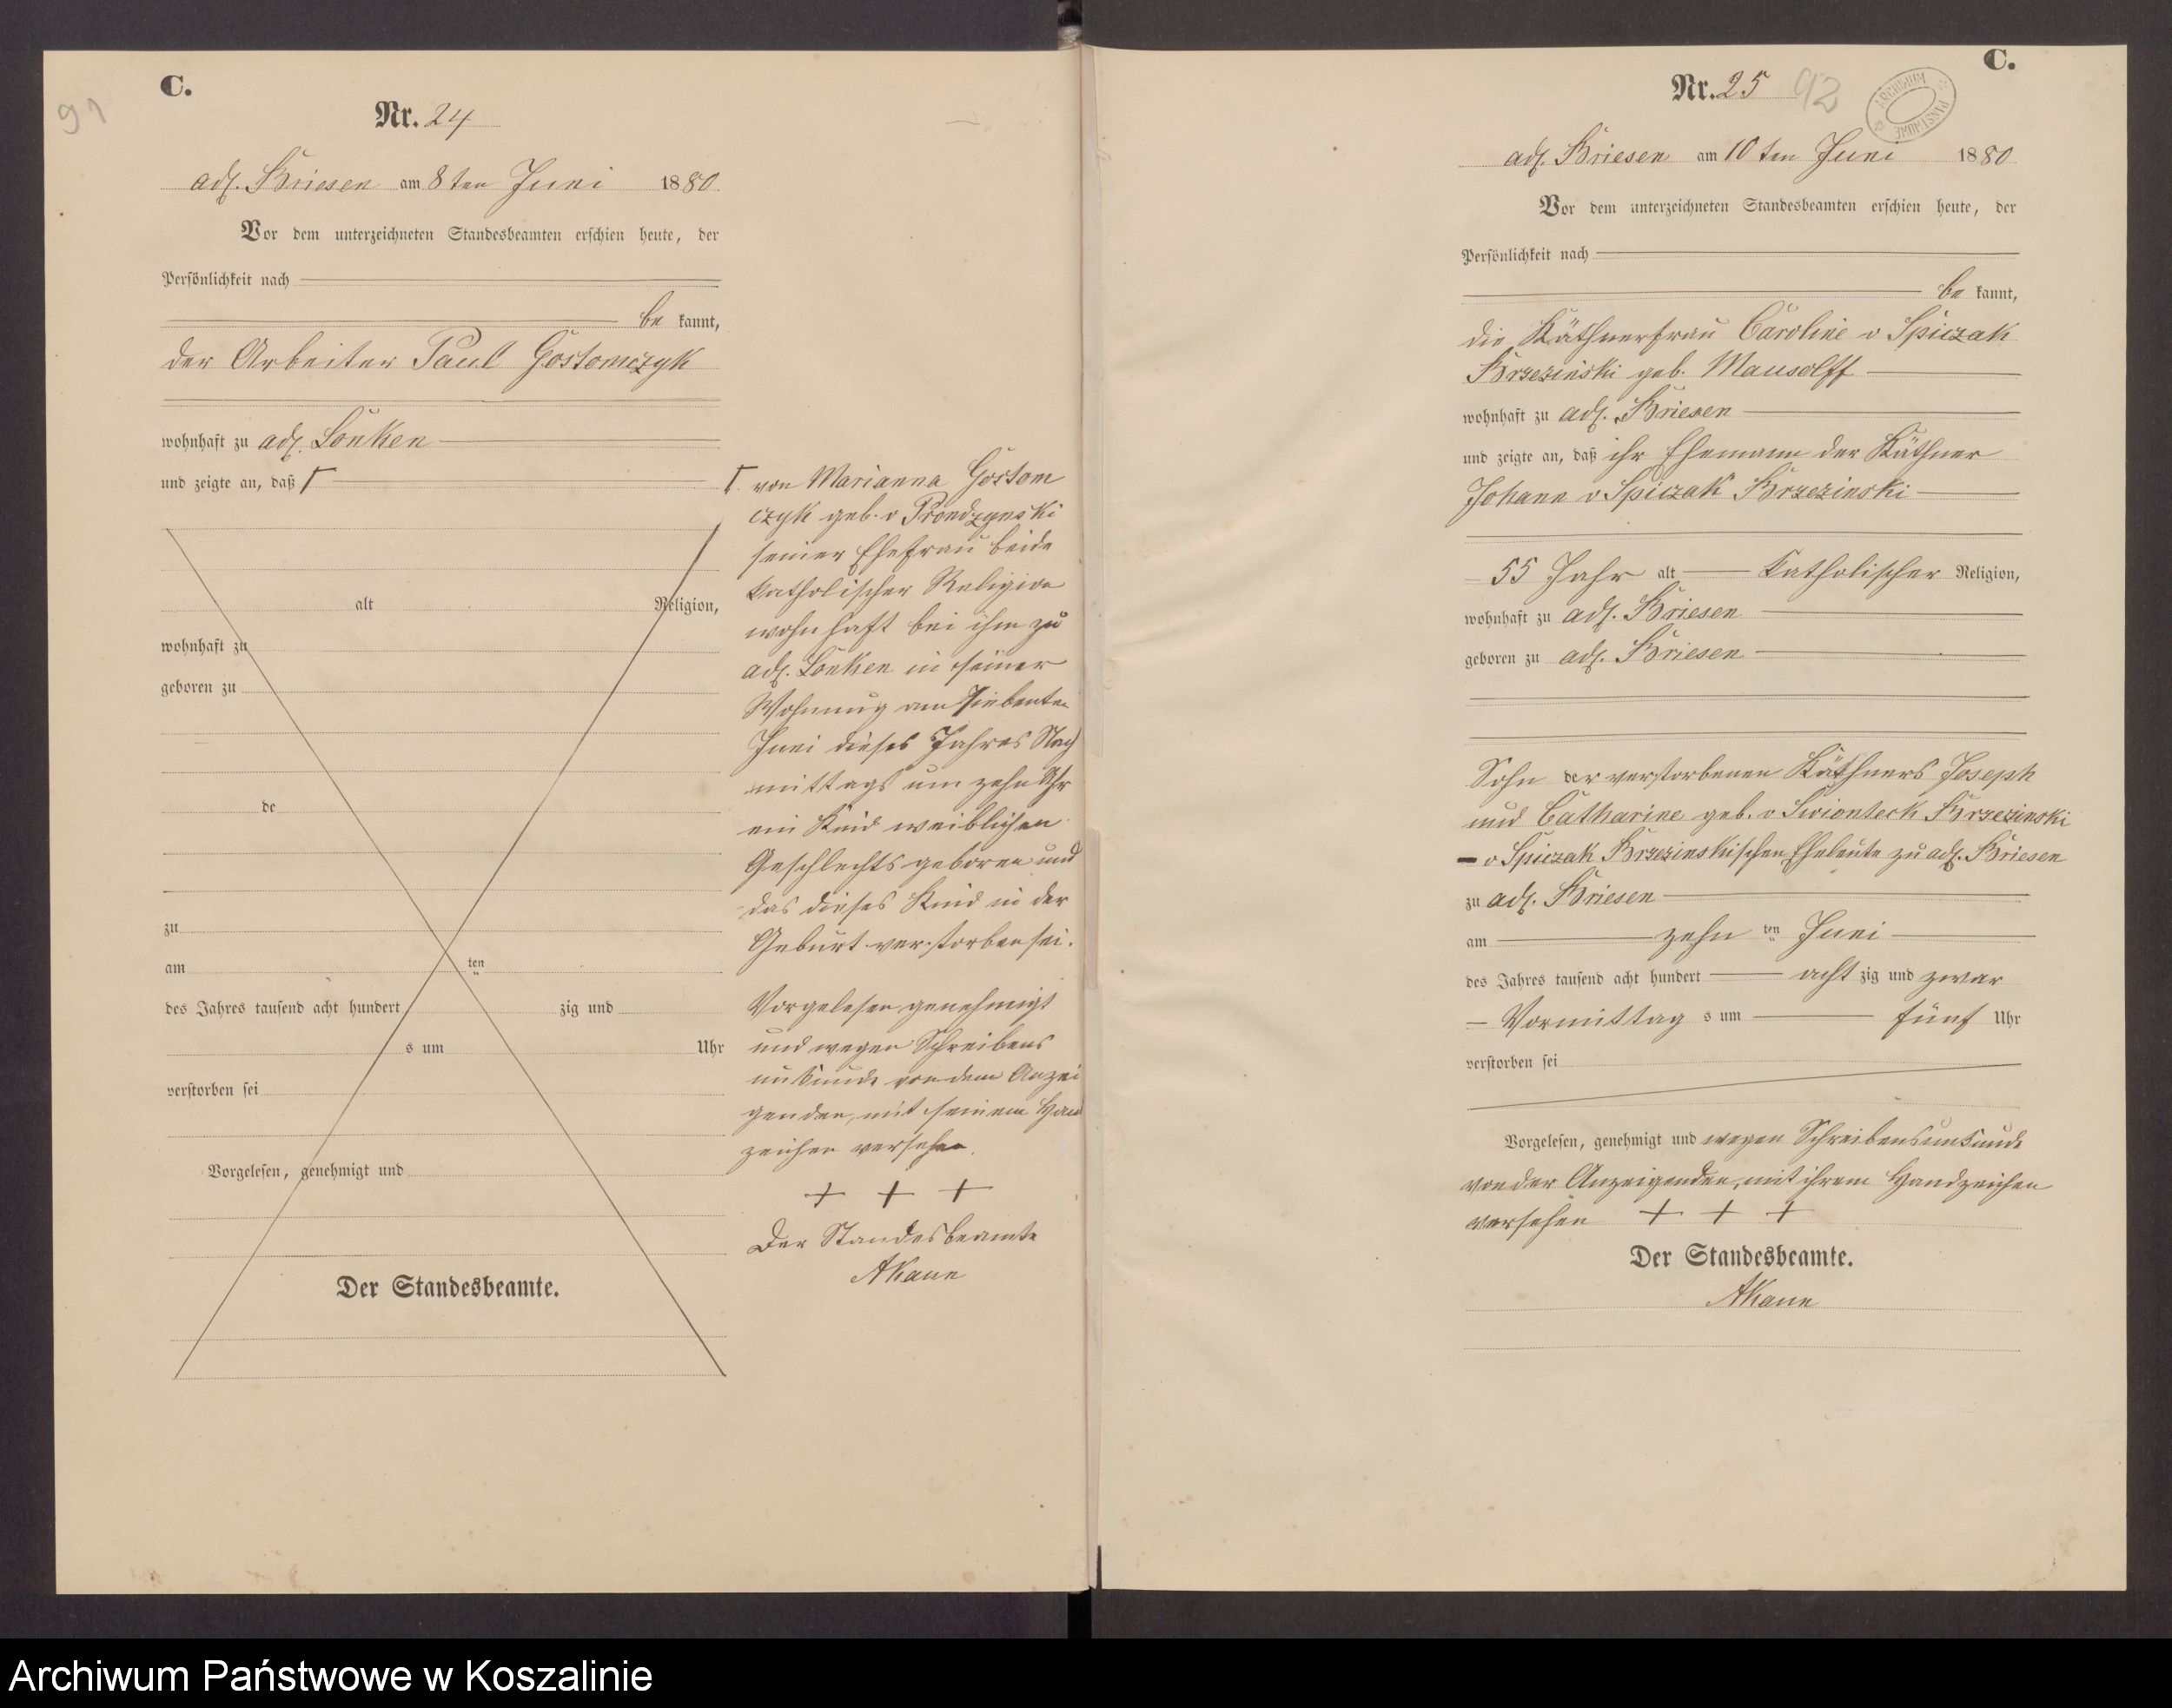 91
C.
Nr. 24
adl. Briesen am 8ten Juni 1880.
Vor dem unterzeichneten Standesbeamten erschien heute, der
Persönlichkeit nach
be kannt,
der Arbeiter Paul Gostomczyk
wohnhaft zu adl. Lonken
und zeigte an, daß Γ
alt Religion,
wohnhaft zu
geboren zu
de
zu
am ten
des Jahres tausend acht hundert zig und
s um Uhr
verstorben sei
Vorgelesen, genehmigt und
Der Standesbeamte.
Γ. von Marianna Gostom
czyk geb. v Prondzynski
seiner Ehefrau beide
katholischer Religion
wohnhaft bei ihm zu
adl. Lonken in seiner
Wohnung am siebenten
Juni dieses Jahres Nach
mittags um zehn Uhr
ein Kind weiblichen
Geschlechts geboren und
das dieses Kind in der
Geburt verstorben sei.
Vorgelesen genehmigt
und wegen Schreibens
unkunde von dem Anzei
genden, mit seinem Hand
zeichen versehen.
+ + +
Der Standesbeamte
AKaun
C.
Nr. 25 92
ARCHIWUM PAŃSTWOWE
adl. Briesen am 10ten Juni 1880
Vor dem unterzeichneten Standesbeamten erschien heute, der
Persönlichkeit nach
be kannt,
die Käthnerfrau Caroline v Spiczak
Brzezinski geb. Mausolff
wohnhaft zu adl. Briesen
und zeigte an, daß ihr Ehemann der Käthner
Johann v Spiczak Brzezinski
55 Jahr alt katholischer Religion,
wohnhaft zu adl. Briesen
geboren zu adl. Briesen
Sohn der verstorbenen Käthners Joseph
und Catharine geb. v Swionteck Brzezinski
- v Spiczak Brzezinskischen Eheleute zu adl. Briesen
zu adl. Briesen
am zehn ten Juni
des Jahres tausend acht hundert acht zig und zwar
Vormittag s um fünf Uhr
verstorben sei
Vorgelesen, genehmigt und wegen Schreibensunkunde
von der Anzeigenden, mit ihrem Handzeichen
versehen + + +
Der Standesbeamte.
AKaun
Archiwum Państwowe w Koszalinie